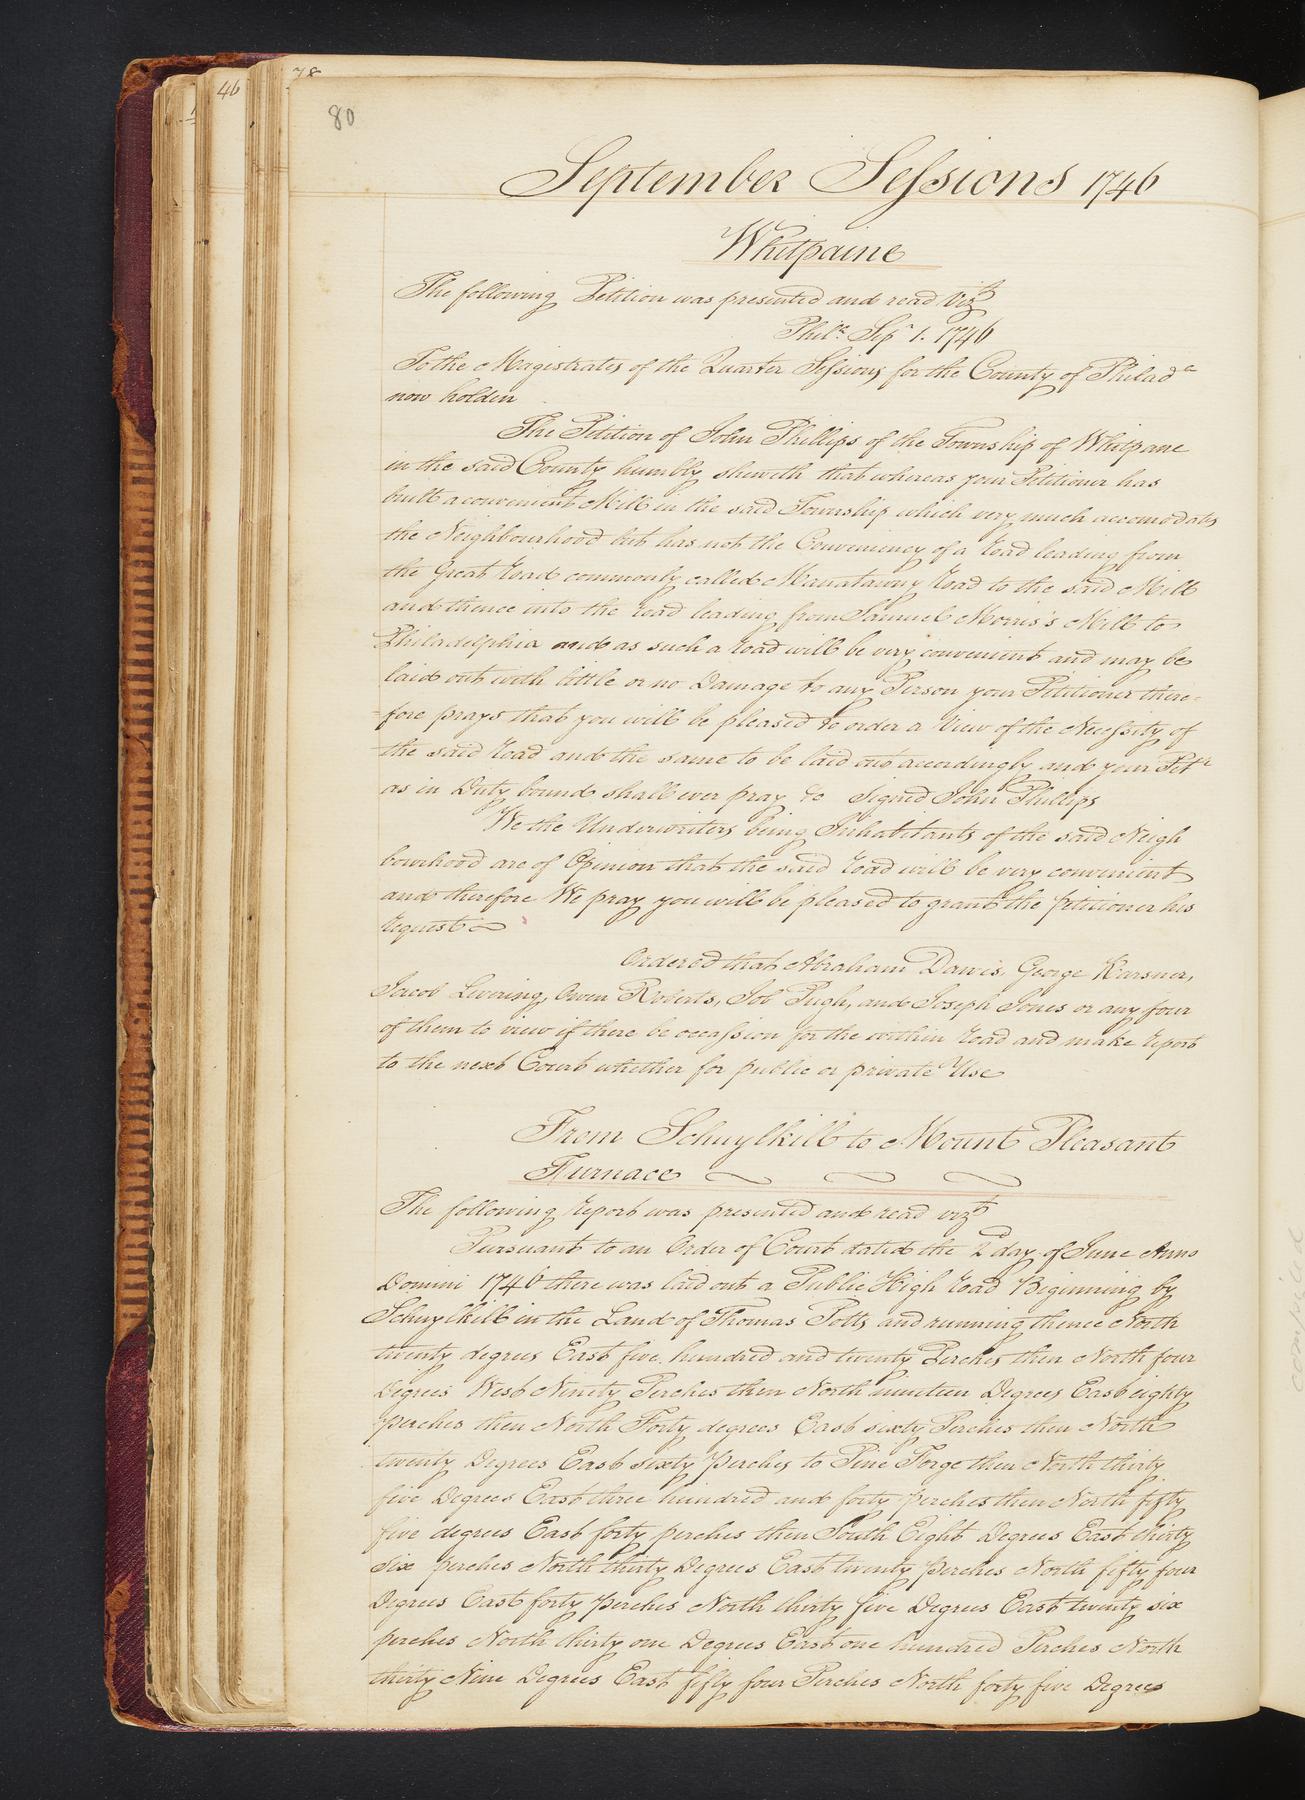 46
78
80
September Sessions 1746
Whitpaine
The following Petition was presented and read Vizt
Phila. Sepr 1. 1746
To the Magistrates of the Quarter Sessions for the County of Philada
now holden
The Petition of John Phillips of the Township of Whitpane
in the said County humbly sheweth that whereas your Petitioner has
built a convenient Mill in the said Township which very much accomodates
the Neighbourhood but has not the Conveniency of a road leading from
the Great road commonly called Manatawny road to the said Mill
and thence into the road leading from Samuel Morris's Mill to
Philadelphia and as such a road will be very convenient and may be
laid out with little or no Damage to any Person your Petitioner there-
=fore prays that you will be pleased to order a View of the Necessity of
the said road and the same to be laid out accordingly and your Petr
as in Duty bound shall ever pray &c Signed John Phillips
We the Underwriters being Inhabitants of the said Neigh
bourhood are of Opinion that the said road will be very convenient
and therefore We pray you will be pleased to grant the petitioner his
request
Ordered that Abraham Dawis, George Karsner,
Jacob Levering, Owen Roberts, Job Pugh, and Joseph Jones or any four
of them to view if there be occassion for the within road and make report
to the next Court whether for public or private Use
From Schuylkill to Mount Pleasant
Furnace
The following report was presented and read vizt
Pursuant to an Order of Court dated the 2d day of June Anno
Domini 1746 there was laid out a Public High road Beginning by
Schuylkill in the Land of Thomas Potts and running thence North
twenty degrees East five hundred and twenty Perches then North four
Degrees West Ninety Perches then North nineteen Degrees East eighty
perches then North Forty degrees East sixty Perches then North
twenty Degrees East sixty perches to Pine Forge then North thirty
five Degrees East three hundred and forty perches then North fifty
five degrees East forty perches then South Eight Degrees East thirty
six perches North thirty Degrees East twenty perches North fifty four
Degrees East forty perches North thirty five Degrees East twenty six
perches North thirty one Degrees East one hundred Perches North
thirty Nine Degrees East fifty four Perches North forty five Degrees
compiled